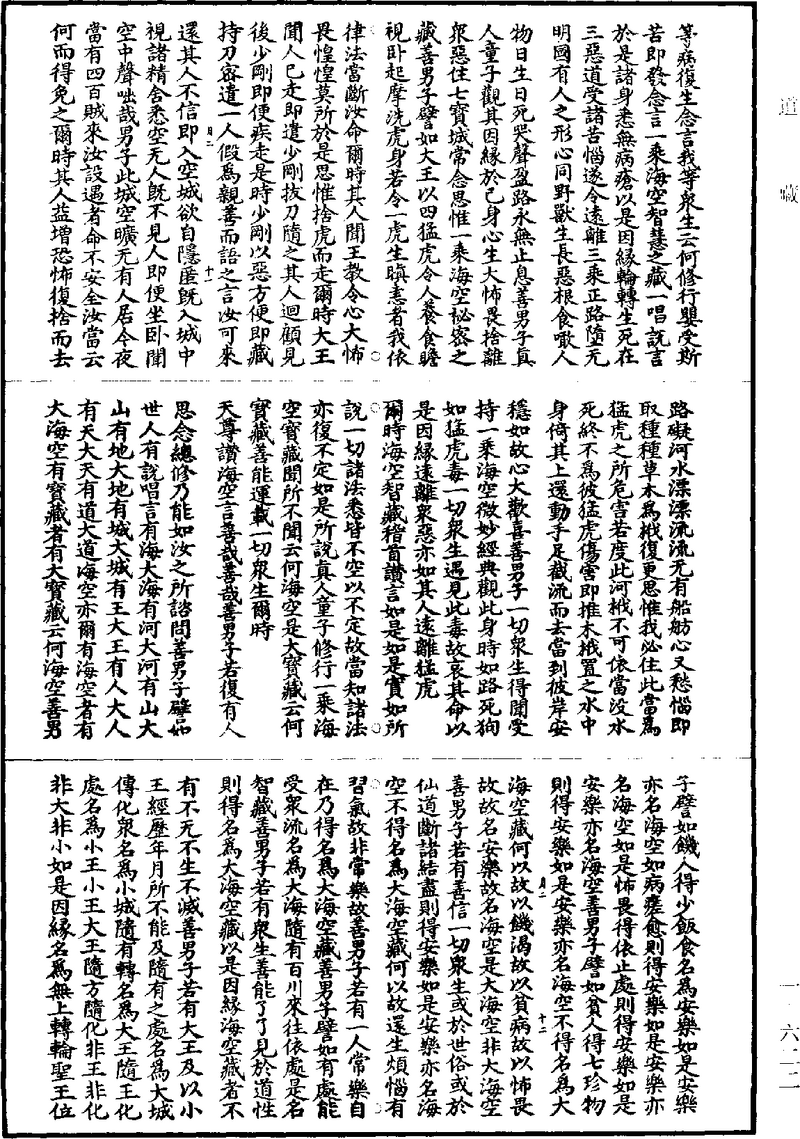 道藏
一—六二二
等病復生念言我等衆生云何修行嬰受斯
苦即發念言一乘海空智慧之藏一唱説言
於是諸身悉無病瘡以是因縁輪轉生死在
三惡道受諸苦惱遂令遠離三乘正路墮无
明國有人之形心同野獸生長惡根食噉人
物日生日死哭聲盈路永無止息善男子真
人童子觀其因縁於已身心生大怖畏捨離
衆惡住七寶城常念思惟一乘海空祕密之
藏善男子譬如大王以四猛虎令人養食瞻
視卧起摩洗虎身若令一虎生瞋恚者我依
律法當斷汝命爾時其人聞王教令心大怖
畏惶惶莫所於是思惟捨虎而走爾時大王
聞人已走即遣少剛拔刀隨之其人迴顧見
後少剛即便疾走是時少剛以惡方便即藏
持刀密遣一人假爲親善而語之言汝可來
月二 十一
還其人不信即入空城欲自隱匿旣入城中
視諸精舍悉空无人旣不見人即便坐卧聞
空中聲咄哉男子此城空曠无有人居今夜
當有四百賊來汝設遇者命不安全汝當云
何而得免之爾時其人益增恐怖復捨而去
路礙河水漂漂流流无有船舫心又愁惱即
取種種草木爲栰復更思惟我必住此當爲
猛虎之所危害若度此河栰不可依當没水
死終不爲彼猛虎傷害即推木栰置之水中
身倚其上運動手足截流而去當到彼岸安
穩如故心大歡喜善男子一切衆生得聞受
持一乘海空微妙經典觀此身時如路死狗
如猛虎毒一切衆生遇見此毒故哀其命以
是因縁遠離衆惡亦如其人遠離猛虎
爾時海空智藏稽首讚言如是如是實如所
說一切諸法悉皆不空以不定故當知諸法
亦復不定如是所説真人童子修行一乘海
空寶藏聞所不聞云何海空是大寶藏云何
寶藏善能運載一切衆生爾時
天尊讚海空言善哉善哉善男子若復有人
思念總修乃能如汝之所諮問善男子譬如
世人有說唱言有海大海有河大河有山大
山有地大地有城大城有王大王有人大人
有天大天有道大道海空亦爾有海空者有
大海空有寶藏者有大寶藏云何海空善男
子譬如饑人得少飯食名爲安樂如是安樂
亦名海空如病瘥愈則得安樂如是安樂亦
名海空如是怖畏得依止處則得安樂如是
安樂亦名海空善男子譬如貧人得七珍物
則得安樂如是安樂亦名海空不得名爲大
月二 十二
海空藏何以故以饑渴故以貧病故以怖畏
故故名安樂故名海空是大海空非大海空
善男子若有善信一切衆生或於世俗或於
仙道斷諸結盡則得安樂如是安樂亦名海
空不得名爲大海空藏何以故還生煩惱有
習氣故非常樂故善男子若有一人常樂自
在乃得名爲大海空藏善男子譬如有處能
受衆流名爲大海隨有百川來往依處是名
智藏善男子若有衆生善能了了見於道性
則得名爲大海空藏以是因縁海空藏者不
有不无不生不滅善男子若有大王及以小
王經歷年月所不能及隨有之處名爲大城
傳化衆名爲小城隨有轉名爲大王隨王化
處名爲小王小王大王隨方隨化非王非化
非大非小如是因縁名爲無上轉輪聖王位